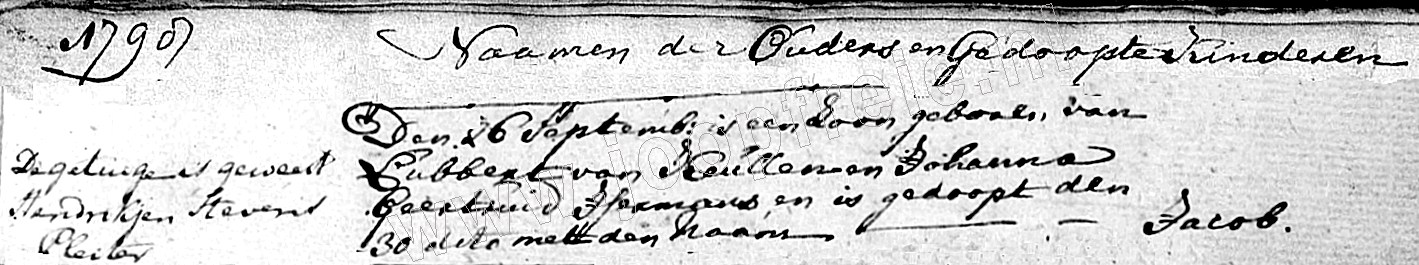 1790 Naamen der Ouders en Gedoopte Kinderen
Den 26 Septemb: is een Zoon geboren van
De getuige is geweest Lubbert van Keulen en Johanna
Hendrikjen Stevens Geertruid Hermans en is gedoopt den
Pleiter 30 dito met den Naam Jacob.